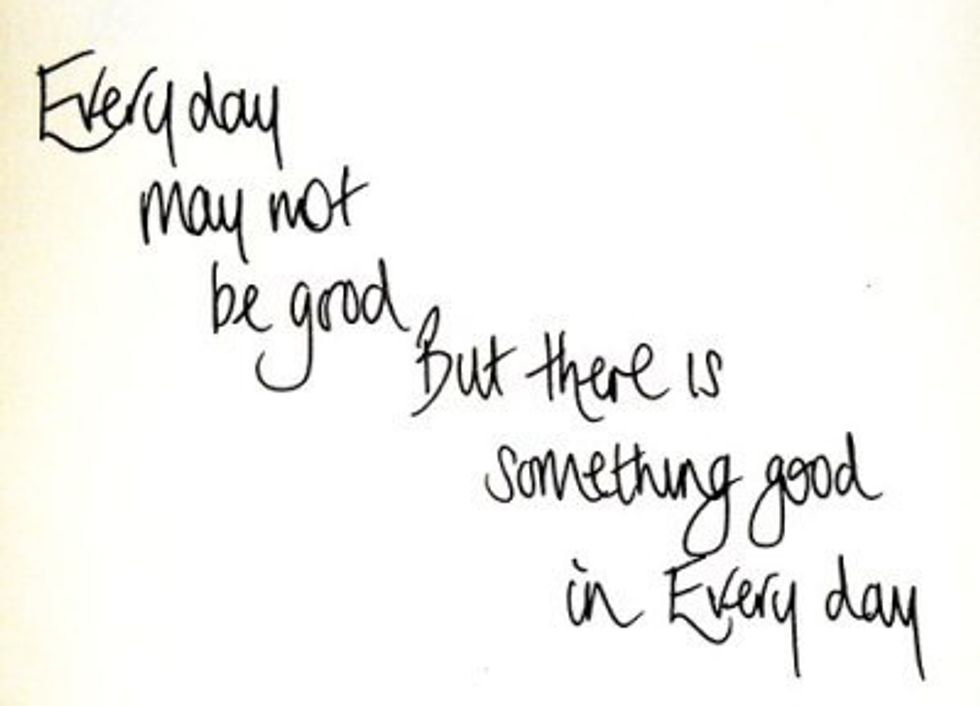 Every day
may not
be good
But there is
something good
in Every day